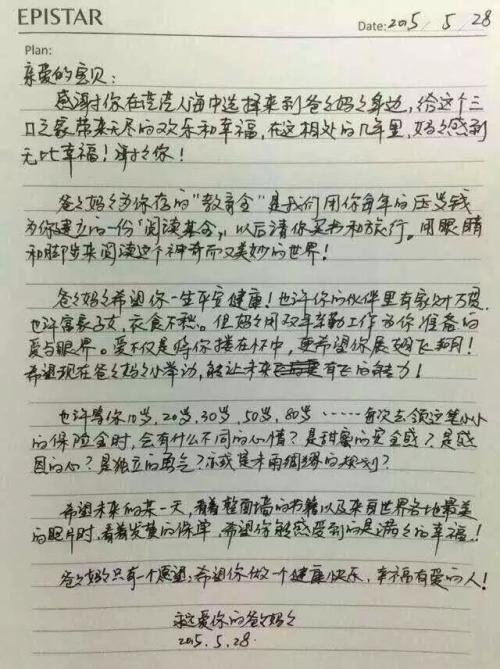 EPISTAR
Date: 2015 / 5 / 28
Plan:
亲爱的宝贝：
感谢你在茫茫人海中选择来到爸々妈々身边，给这个三
口之家带来无尽的欢乐和幸福，在这相处的几年里，妈々感到
无比幸福！谢々你！
爸々妈々为你存的“教育金”是我们用你每年的压岁钱
为你建立的一份“阅读基金”，以后请你买书和旅行。用眼睛
和脚步来阅读这个神奇而又美妙的世界！
爸々妈々希望你一生平安健康！也许你的伙伴里有家财万贯，
也许富家子女，衣食不愁。但妈々用双手辛勤工作为你准备的
爱与眼界。爱不仅是将你搂在怀中，更希望你展翅飞翔！
希望现在爸々妈々小举动，能让未来有飞的能力！
也许等你10岁，20岁，30岁，50岁，80岁……每次去领这笔小小
的保险金时，会有什么不同的心情？是甜蜜的安全感？是感
恩的心？是独立的勇气？亦或是未雨绸缪的规划？
希望未来的某一天，看着整面墙的书籍以及来自世界各地最美
的照片时，看着发黄的保单，希望你能感受到的是满々的幸福！
爸々妈々只有一个愿望：希望你做一个健康快乐，幸福有爱的人！
永远爱你的爸々妈々
2015.5.28.